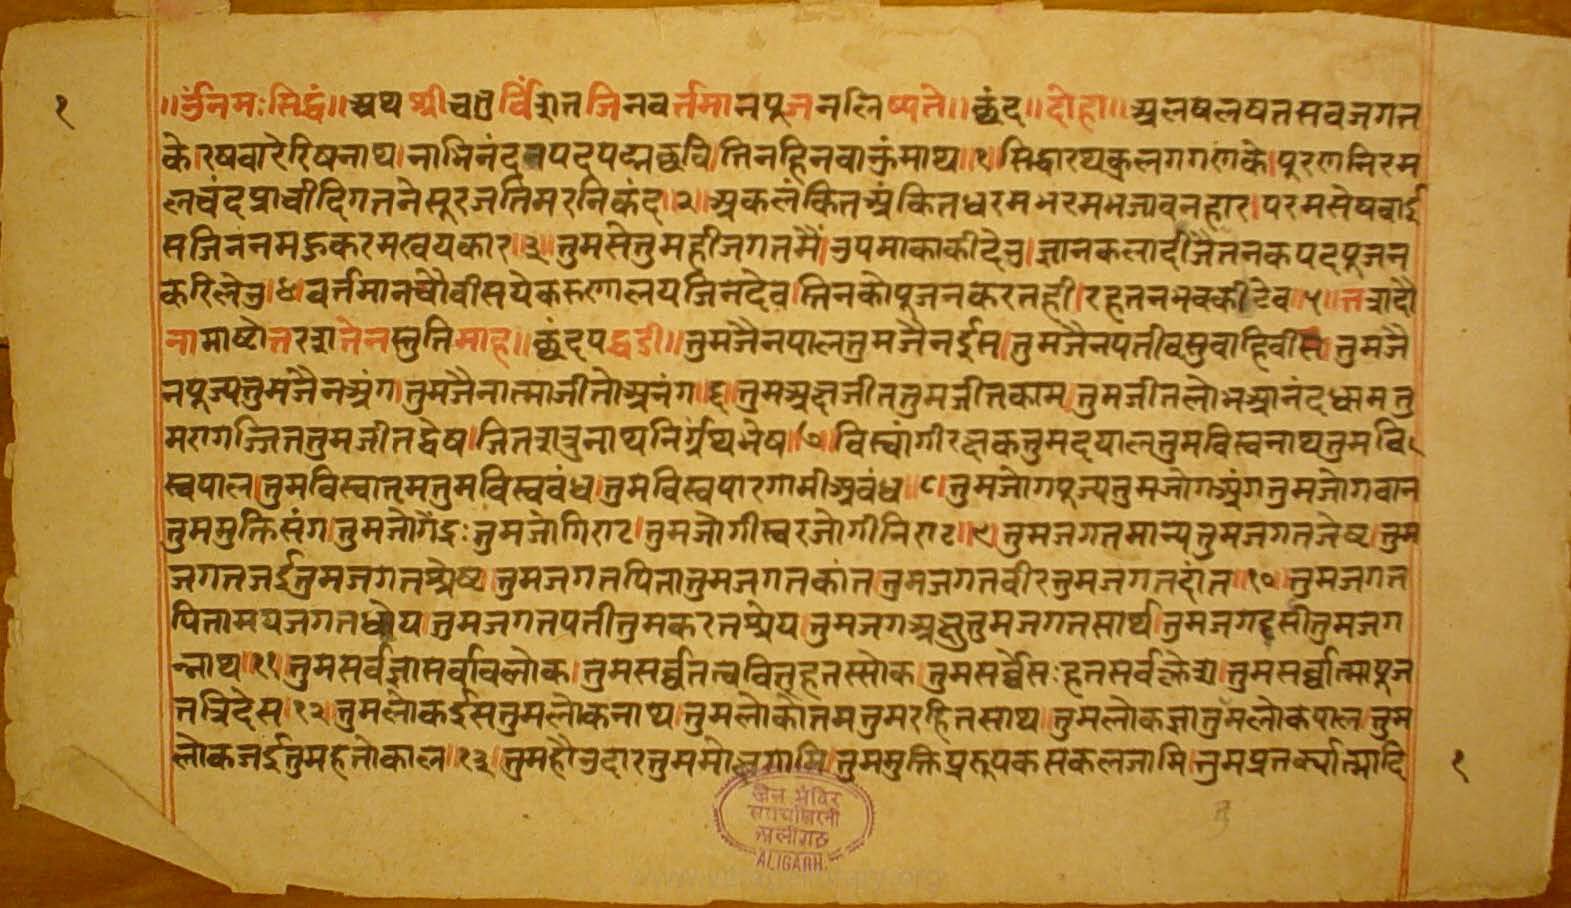 १
॥ॐनमःसिद्धं॥अथश्रीचतुर्विंशतजिनवर्तमानपूजनलिष्यते॥छंद॥दोहा॥अलषलषतसवजगत
के।रषवारेरिषनाथ।नाभिनंदनपदपद्मछवि।तिनहिनवाऊंमाथ।१।सिद्धारथकुलगगणके।पूरणनिरम
लचंदप्राचीदिगतनेसूरजतिमरनिकंद।२।अकलंकितअंकितधरमभरमभज्यावनहार।परमसेषवाई
सजिननमहुकरम
तुमसेतुमहीजगतमैं।उपमाकाकीदेउ।ज्ञानकलादीजैतनकपदपूजन
करिलेउ।४।वर्तमानचौवीसयेकरुणालयजिनदेव।तिनकोपूजनकरतही।रहतनभवकीटेव।५।तत्रादौ
नामाष्टोत्तरशतेनस्तुतिमाह॥छंदपद्धडी॥तुमजैनपालतुमजैनईस।तुमजैनपती तुमजै
नपूज्यतुमजैनअंग।तुमजैनात्माजीतोअनंग।६।तुमअक्षजीततुमजीतकाम।तुमजीतलोभआनंदधामतु
मरागजिततुमजीतद्वेष।जितशत्रुनाथनिर्ग्रंथभेष।७। तुमदयालतुमविस्वनाथतुमवि
स्वपाल।तुमविस्वातमतुमविस्ववंध।तुमविस्वपारगामीअवंध।८।तुमजोगपूज्यतुमजोगअंगतुमजोगवान
तुममुक्तिसंग।तुमजोगैंद्रःतुमजोगिराट।तुमजोगीस्वरजोगीनिराट।९।तुमजगतमान्यतुमजगतजेष्ट।तुम
जगतजईतुमजगतश्रेष्ट।तुमजगतपितातुमजगतकांत।तुमजगतवीरतुमजगतदांत।१०।तुमजगत
पितामयजगतध्येय।तुमजगतपतीतुमकरतश्रेय।तुमजगअक्षुतुमजगतसार्थ।तुमजगद्दसीतुमजग
न्नाथ।११।तुमसर्वज्ञासर्वविलोक।तुमसर्व्वतत्त्ववितहतस्सोक।तुमसर्व्वेसःहतसर्वक्लेश।तुमसर्व्वात्मापूज
तत्रिदेस।१२।तुमलोकईसतुमलोकनाथ।तुमलोकोतमतुमरहितसाथ।तुमलोकज्ञातुमलोकपाल।तुम
लोकजईतुमहतोकाल।१३।तुमहौउदारतुममोक्षगामि।तुममुक्तिप्ररुपकसकलजामि।तुमप्रतर्क्यात्मादि
१
जैन मंदिर
अलीगढ
ALIGARH.